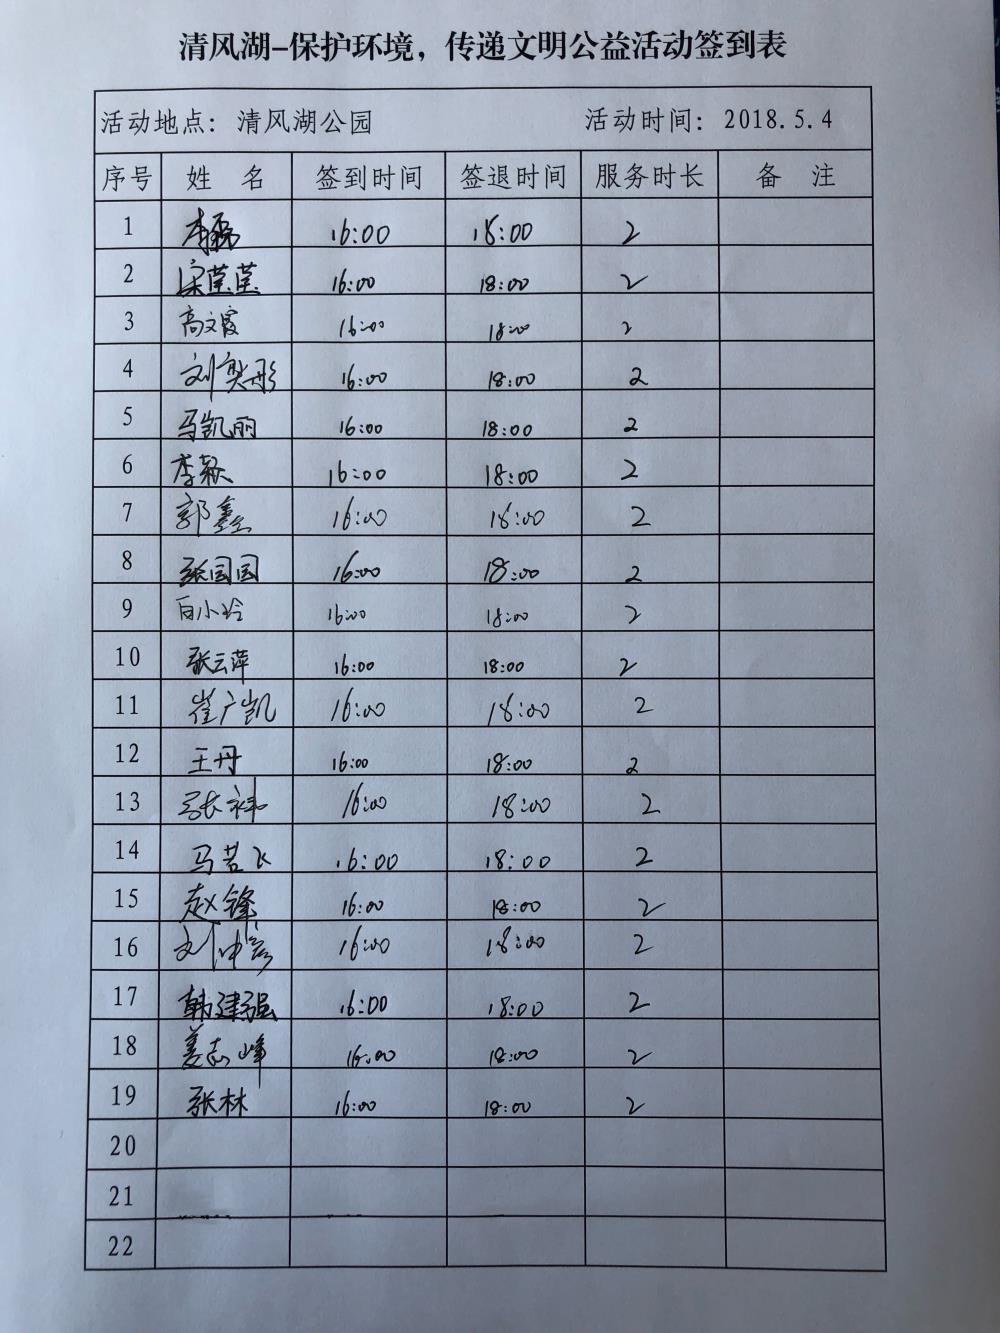 清风湖-保护环境，传递文明公益活动签到表
活动地点：清风湖公园 活动时间：2018.5.4
序号 姓 名 签到时间 签退时间 服务时长 备 注
1 李 16:00 18:00 2
2 梁莹莹 16:00 18:00 2
3 高文霞 16:00 18:00 2
4 刘奕彤 16:00 18:00 2
5 马凯丽 16:00 18:00 2
6 李颖 16:00 18:00 2
7 郭鑫 16:00 18:00 2
8 张国国 16:00 18:00 2
9 白小玲 16:00 18:00 2
10 张云萍 16:00 18:00 2
11 崔广凯 16:00 18:00 2
12 王丹 16:00 18:00 2
13 张祎 16:00 18:00 2
14 马若飞 16:00 18:00 2
15 赵锋 16:00 18:00 2
16 刘仲彦 16:00 18:00 2
17 韩建强 16:00 18:00 2
18 姜志峰 16:00 18:00 2
19 张林 16:00 18:00 2
20
21
22